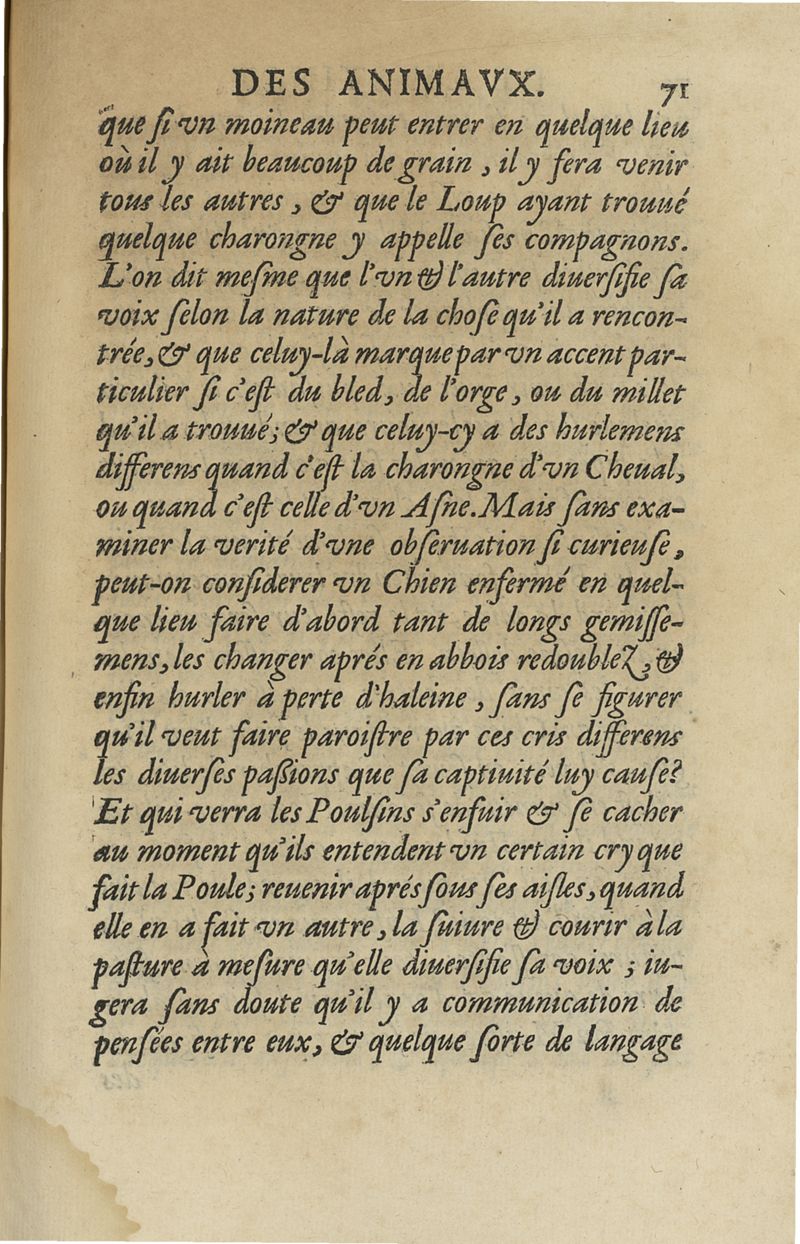 DES ANIMAVX. 71
que ſi vn moineau peut entrer en quelque lieu
où il y ait beaucoup de grain, il y fera venir
tous les autres, & que le Loup ayant trouué
quelque charongne y appelle ſes compagnons.
L'on dit meſme que l'vn & l'autre diuerſifie ſa
voix ſelon la nature de la choſe qu'il a rencon-
trée, & que celuy-là marque par vn accent par-
ticulier ſi c'eſt du bled, de l'orge, ou du millet
qu'il a trouué; & que celuy-cy a des hurlemens
differens quand c'eſt la charongne d'vn Cheual,
ou quand c'eſt celle d'vn Aſne. Mais ſans exa-
miner la verité d'vne obſeruation ſi curieuſe,
peut-on conſiderer vn Chien enfermé en quel-
que lieu faire d'abord tant de longs gemiſſe-
mens, les changer aprés en abbois redoublez, &
enfin hurler à perte d'haleine, ſans ſe figurer
qu'il veut faire paroiſtre par ces cris differens
les diuerſes paßions que ſa captiuité luy cauſe?
Et qui verra les Poulſins s'enfuir & ſe cacher
au moment qu'ils entendent vn certain cry que
fait la Poule; reuenir aprés ſous ſes aiſles, quand
elle en a fait vn autre, la ſuiure & courir à la
paſture à meſure qu'elle diuerſifie ſa voix; iu-
gera ſans doute qu'il y a communication de
penſées entre eux, & quelque ſorte de langage